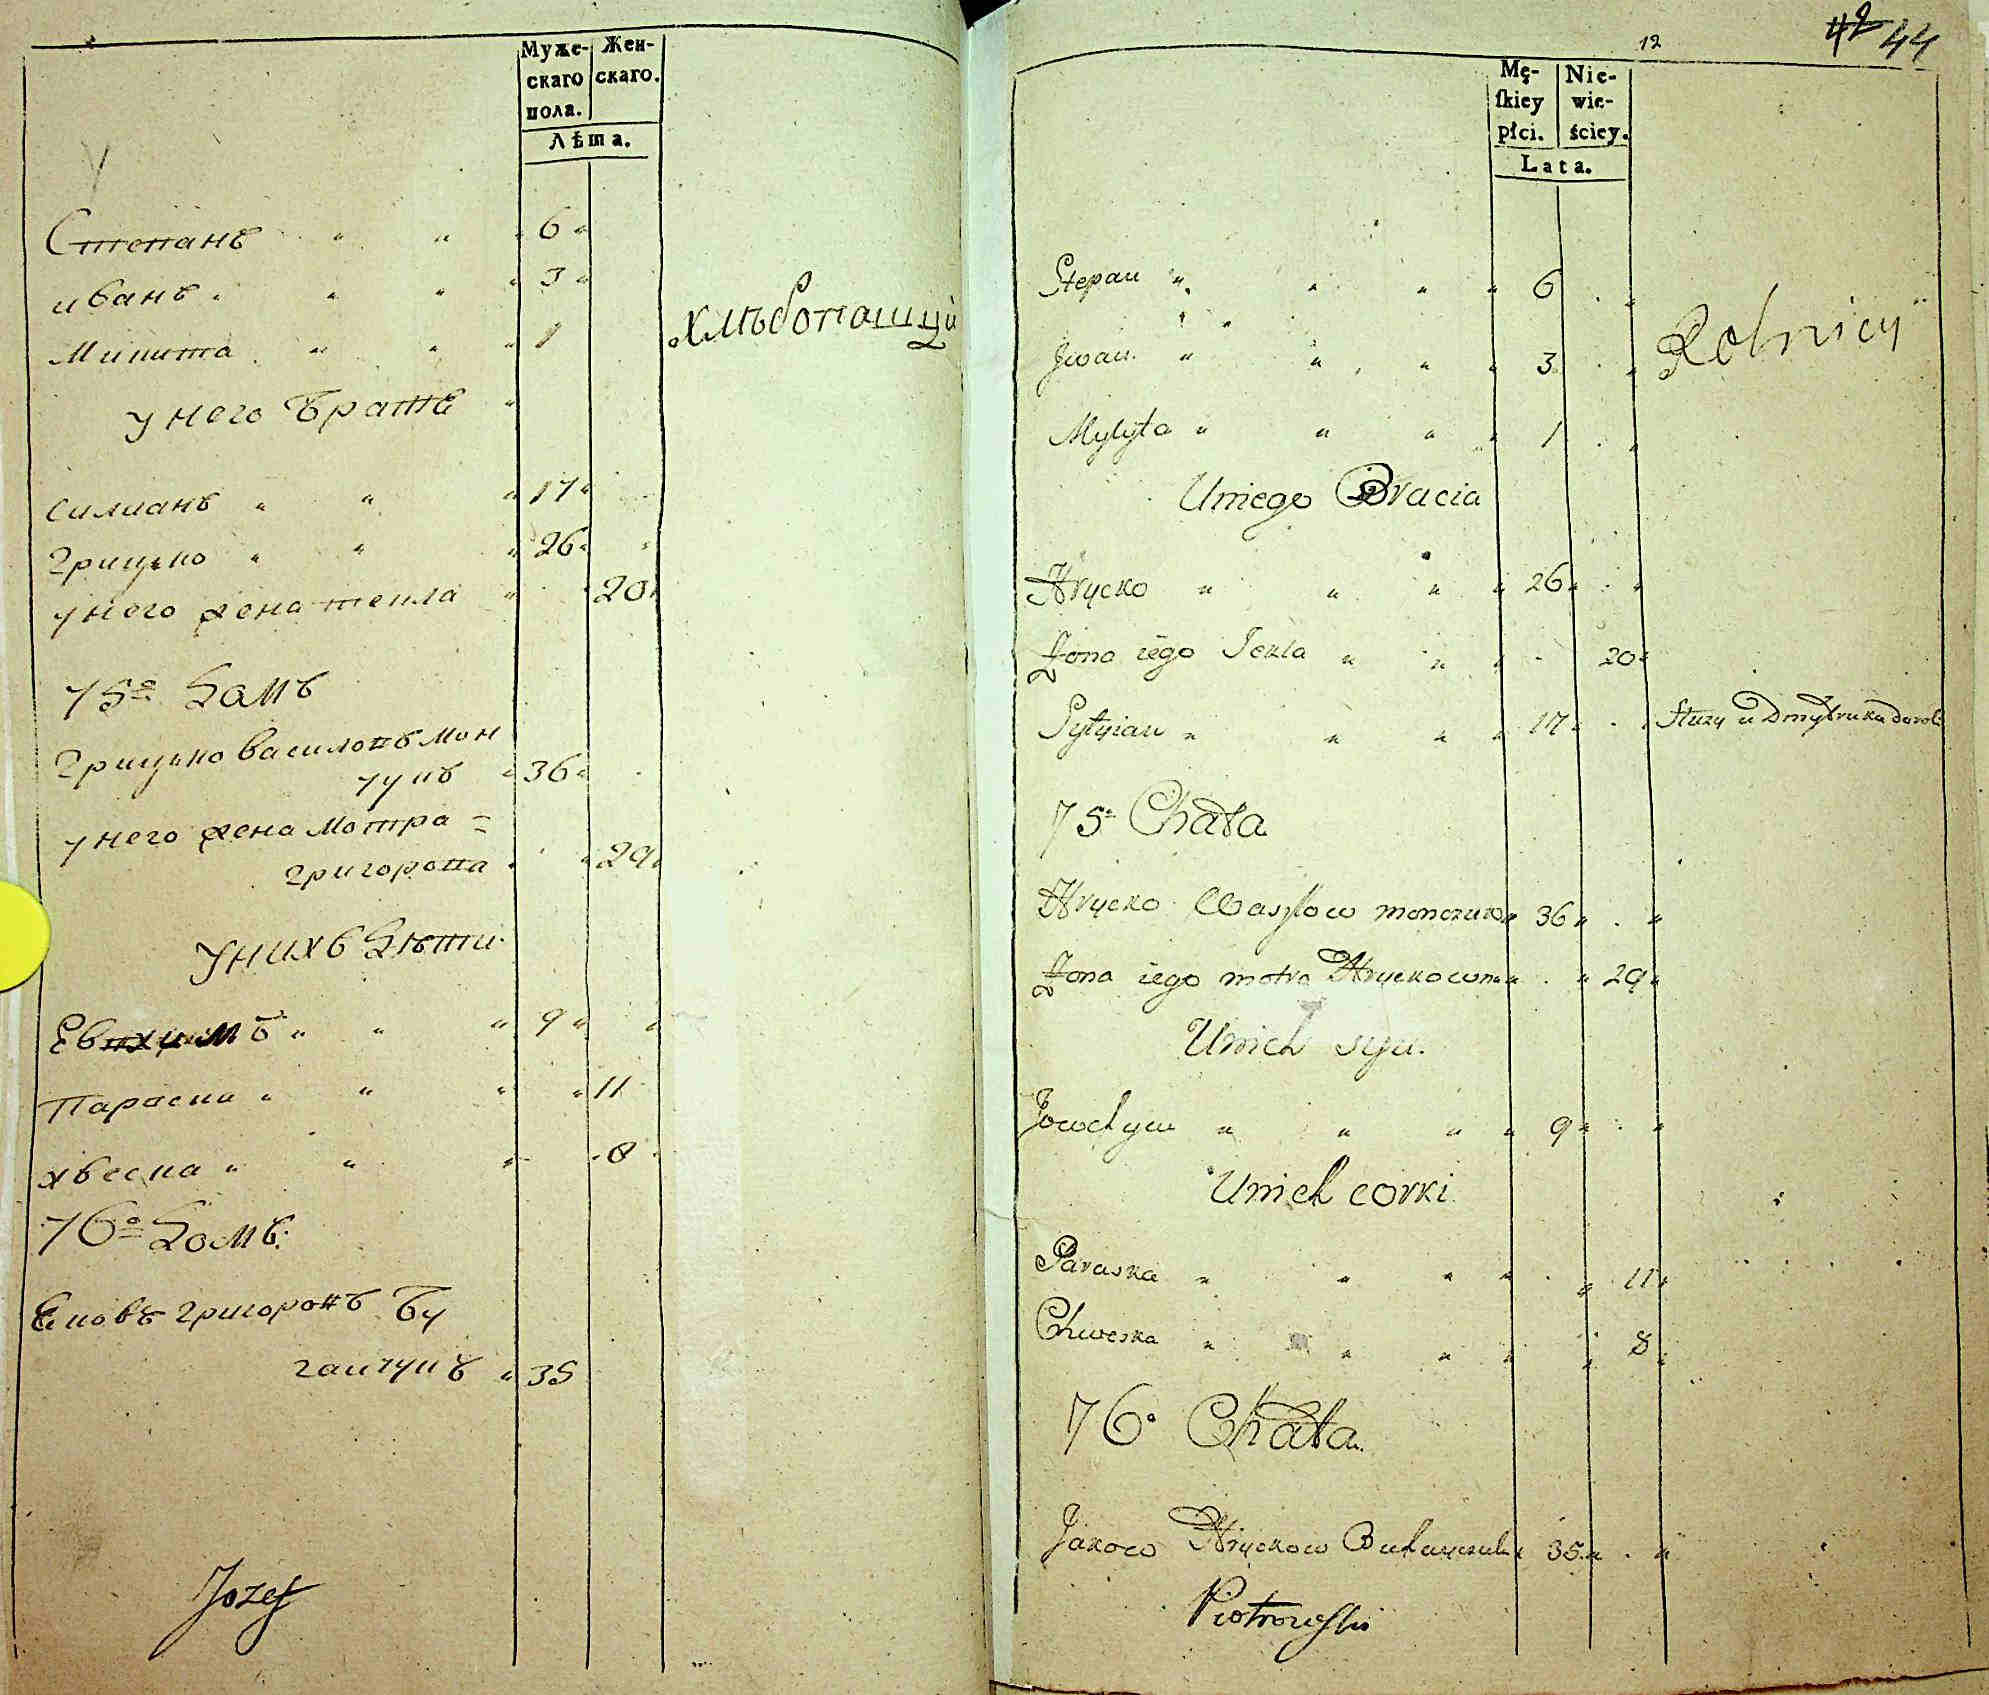 Муже-
скаго
пола.
Жен-
скаго.
Лѣта.
Степанъ 6
иванъ 3
Микита 1
у него братъ
силианъ 17
грицько 26
унего жена текла 20
хлѣбопашцы
75о домъ
грицько василовъ мон
чукъ 36
унего жена Мотра
григорова 29
унихъ дѣти
Евхимъ 9
Параска 11
хвеска 8
76о домъ
Яковъ григоровъ Бу
гайчукъ 35
Jozef
12
42 44
Mę-
skiey
płci.
Nie-
wie-
ściey.
Lata.
Stepan 6
Jwan 3
Mykyta 1
Rolnicy
Uniego Bracia
Hrycko 26
Żona iego Tekla 20
Sylyian 17
Służy u Dmytruka
75a Chata
Hrycko Wasylow monczuk 36
Żona iego motra Hryckowa 29
Unich syn.
Jowchym 9
Unich corki
Paraska 11
Chweska 8
76a Chata
Jakow Hryckow Buhayczuk 35
Piotrowski